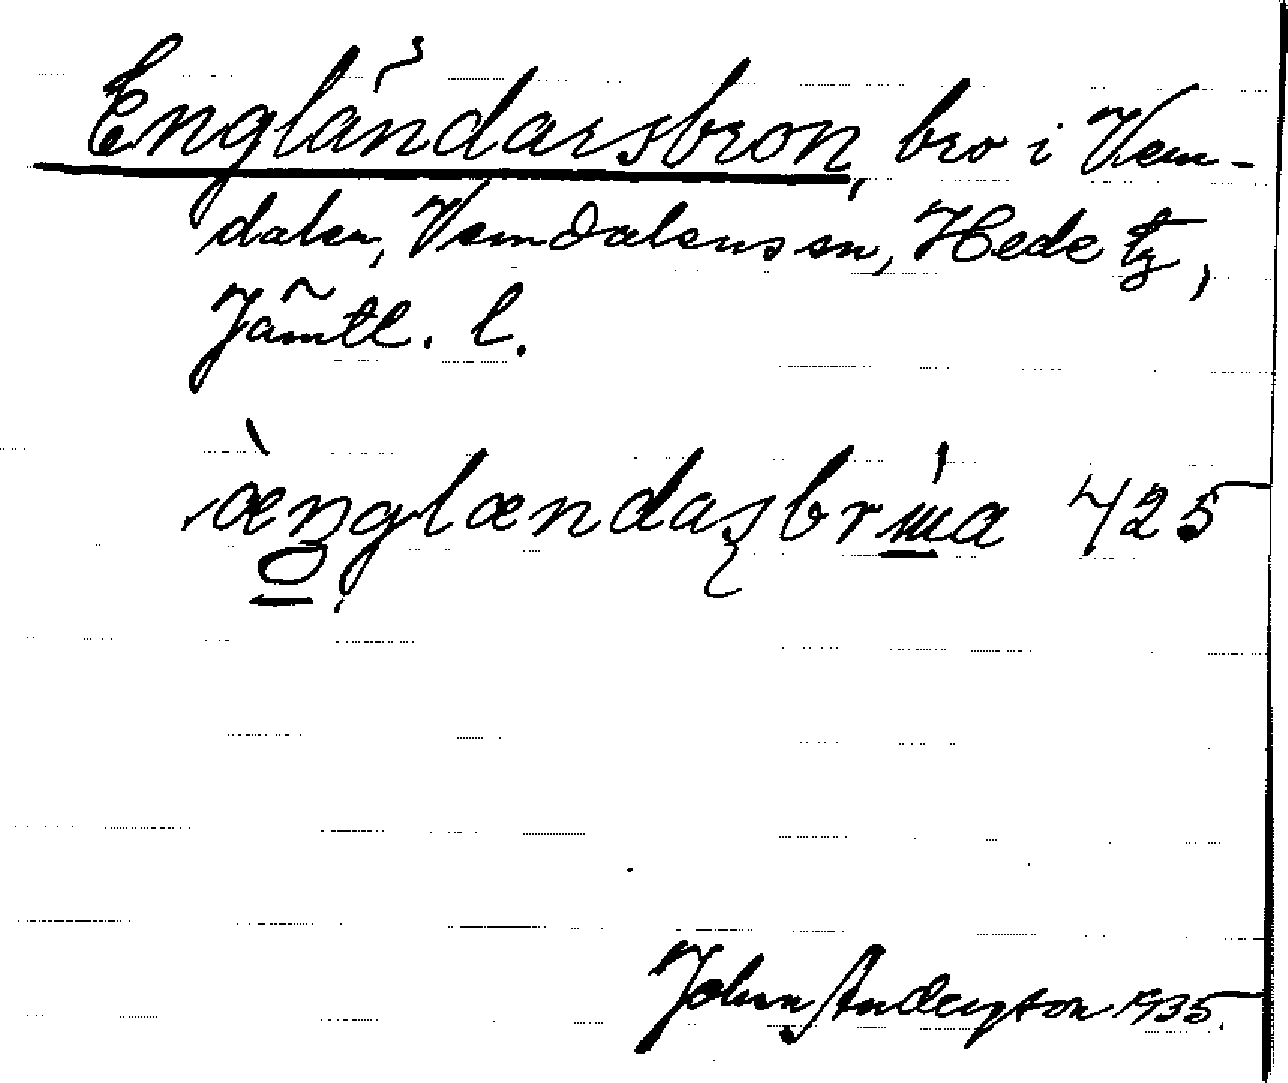 Engländarsbron, bro i Vem-
dalen, Vemdalens sn, Hede tg,
Jämtl. l.
425
John Andersson 1935.